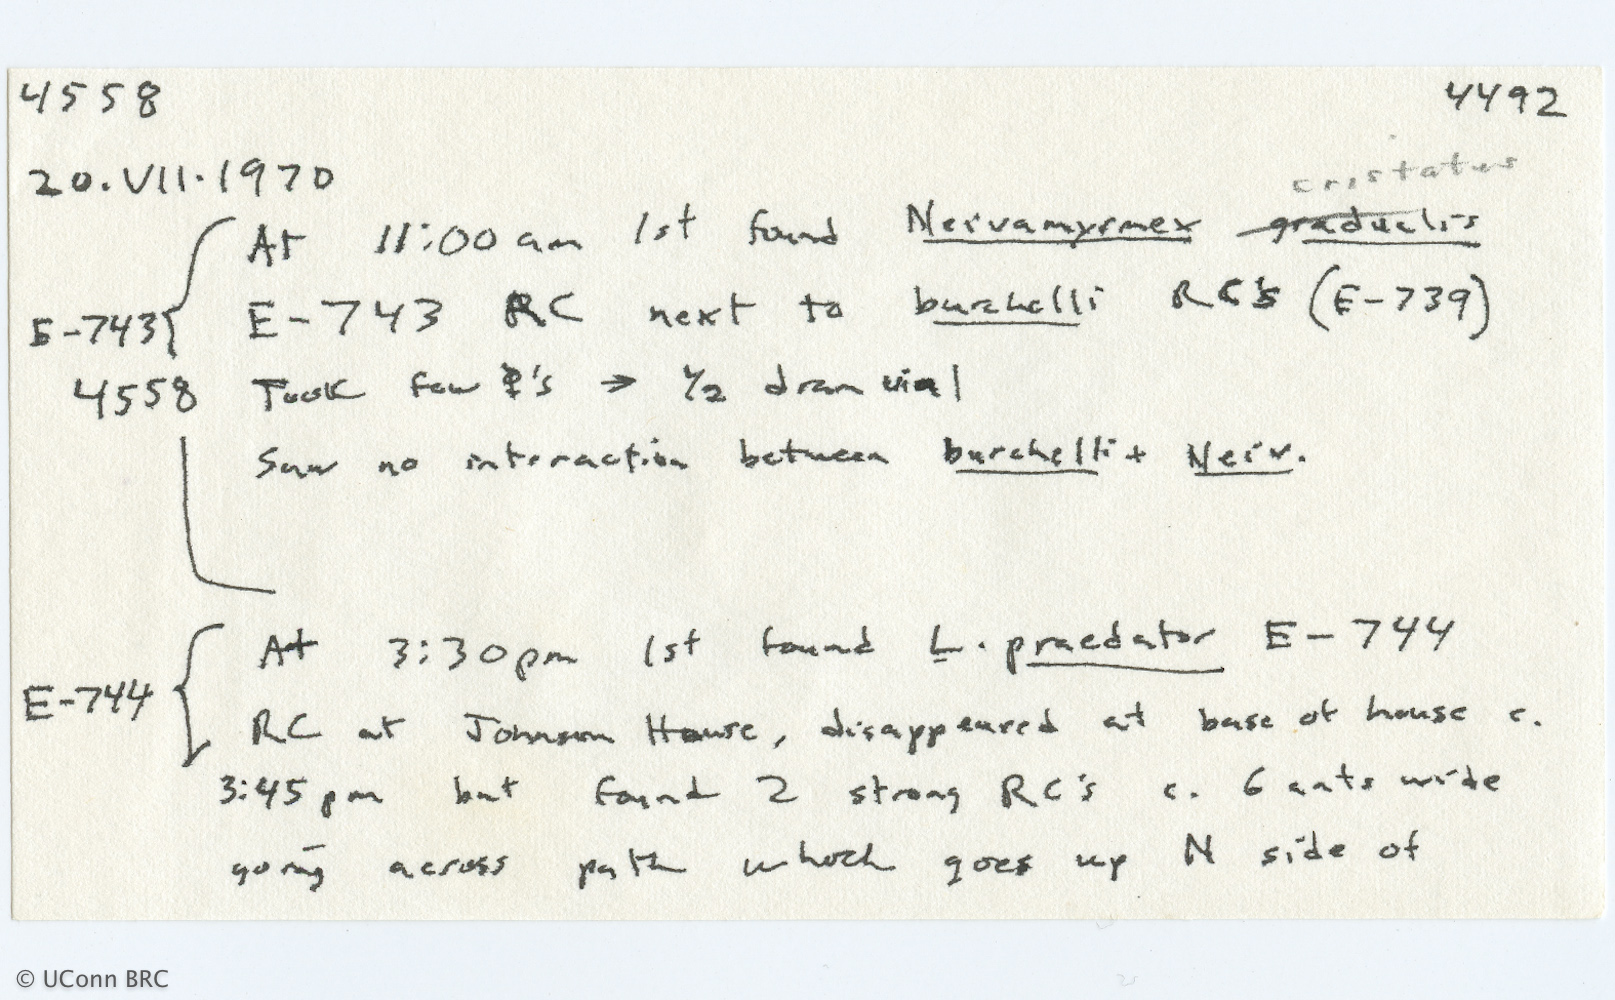 4558 4492
20.VII.1970
cristatus
At 11:00 am 1st found Neivamyrmex gradualis
E-743 E-743 RC next to burchelli RC's (E-739)
4558 Took few ☿'s → 1/2 dram vial
Saw no interaction between burchelli + Neiv.
At 3:30 pm 1st found L. praedator E-744
E-744 RC at Johnson House, disappeared at base of house c.
3:45 pm but found 2 strong RC's c. 6 ants wide
going across path which goes up N side of
© UConn BRC